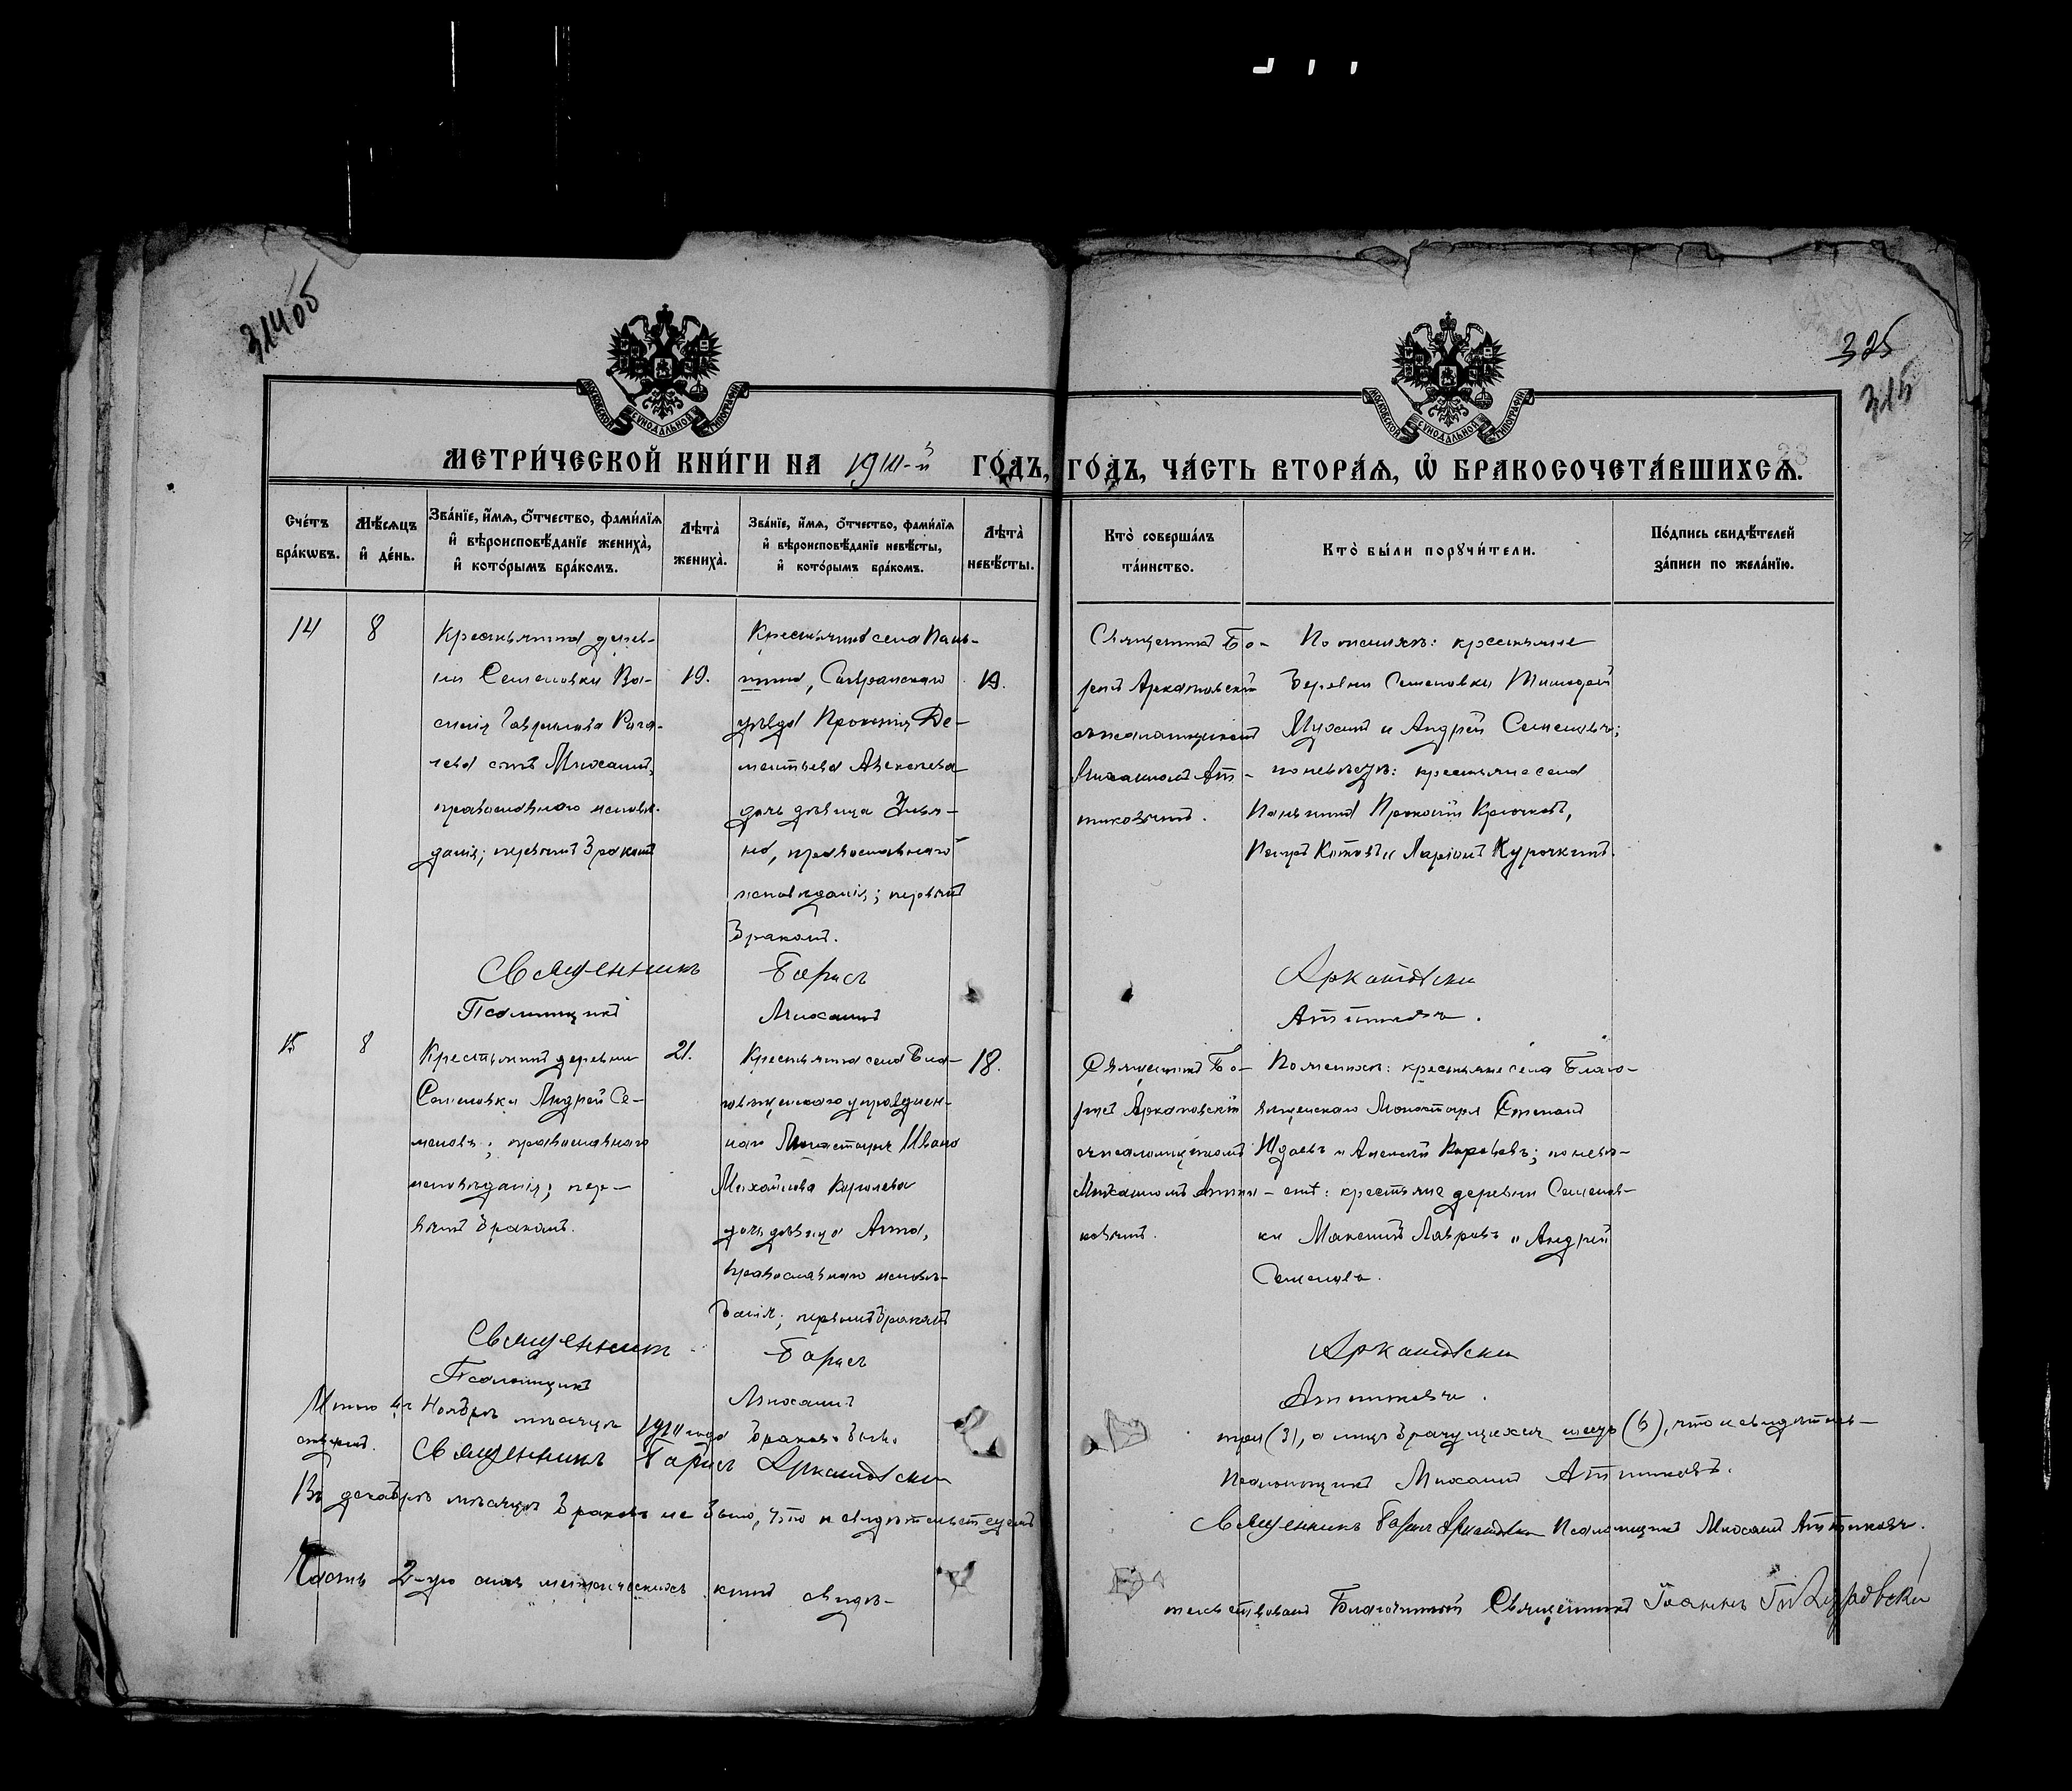 314об
325
315
28
МОСКОВСКОЙ СѴНОДАЛЬНОЙ ТИПОГРАФІИ
МОСКОВСКОЙ СѴНОДАЛЬНОЙ ТИПОГРАФІИ
МЕТРИ́ЧЕСКОЙ КНИ́ГИ НА 1911-й ГО́ДЪ,
ГО́ДЪ, ЧА́СТЬ ВТОРА́Ѧ, Ѡ БРАКОСОЧЕТА́ВШИХСѦ.
Сче́тъ бра́кѡвъ.
Мѣ́сѧцъ и҆ де́нь.
Зва́нїе, и҆́мѧ, ѻ҆́тчество, фами́лїѧ и҆ вѣроисповѣ́данїе жениха̀, и҆ кото́рымъ бра́комъ.
Лѣта̀ жениха̀.
Зва́нїе, и҆́мѧ, ѻ҆́тчество, фами́лїѧ и҆ вѣроисповѣ́данїе невѣ́сты, и҆ кото́рымъ бра́комъ.
Лѣта̀ невѣ́сты.
Кто̀ соверша́лъ та́инство.
Кто̀ бы́ли порꙋчи́тели.
По́дпись свидѣ́телей за́писи по жела́нїю.
14
8
Крестьянинъ дерев-
ни Семеновки Ва-
силія Гаврилова Рога-
чева сынъ Михаилъ,
православнаго исповѣ-
данія; первымъ бракомъ
19.
Крестьянина села Пань-
шина,
уѣзда Прокопія Де-
ментьева
дочь дѣвица Улья-
на, православнаго
исповѣданія; первымъ
бракомъ.
19.
Священникъ Бо-
рисъ Аркатовскій
съ псаломщикомъ
Михаиломъ Ат-
тиковымъ.
По женихѣ: крестьяне
деревни Семеновки Тимофей
Мухинъ и Андрей Семеновъ;
по невѣстѣ: крестьяне села
Паньшина Прокопій Крючковъ,
Петръ Китовъ и Ларіонъ Курочкинъ.
Священникъ Борисъ Аркатовскій
Псаломщикъ Михаилъ Аттиковъ.
15
8
Крестьянинъ деревни
Семеновки Андрей Се-
меновъ; православнаго
исповѣданія; пер-
вымъ бракомъ.
21.
Крестьянина села Бла-
говѣщенскаго упразднен-
наго Монастыря Ивана
Михайлова Королева
дочь дѣвица Анна,
православнаго исповѣ-
данія; первымъ бракомъ
18.
Священникъ Бо-
рисъ Аркатовскій
съ псаломщикомъ
Михаиломъ Атти-
ковымъ.
По женихѣ: крестьяне села Благо-
вѣщенскаго Монастыря Степанъ
Ждаевъ и Алексѣй Королевъ; по невѣ-
стѣ: крестьяне деревни Семенов-
ки Максимъ Лавровъ и Андрей
Семеновъ.
Священникъ Борисъ Аркатовскій
Псаломщикъ Михаилъ Аттиковъ.
Итого въ Ноябрѣ мѣсяцѣ 1911 года браковъ было три (3), а лицъ брачущихся шесть (6), что и свидѣтель-
ствуемъ. Священникъ Борисъ Аркатовскій Псаломщикъ Михаилъ Аттиковъ.
Въ декабрѣ мѣсяцѣ браковъ не было, что и свидѣтельствуемъ Священникъ Борисъ Аркатовскій Псаломщикъ Михаилъ Аттиковъ.
Часть 2-ую сихъ метрическихъ книгъ свидѣ-
тельствовалъ Благочинный Священникъ Іоаннъ